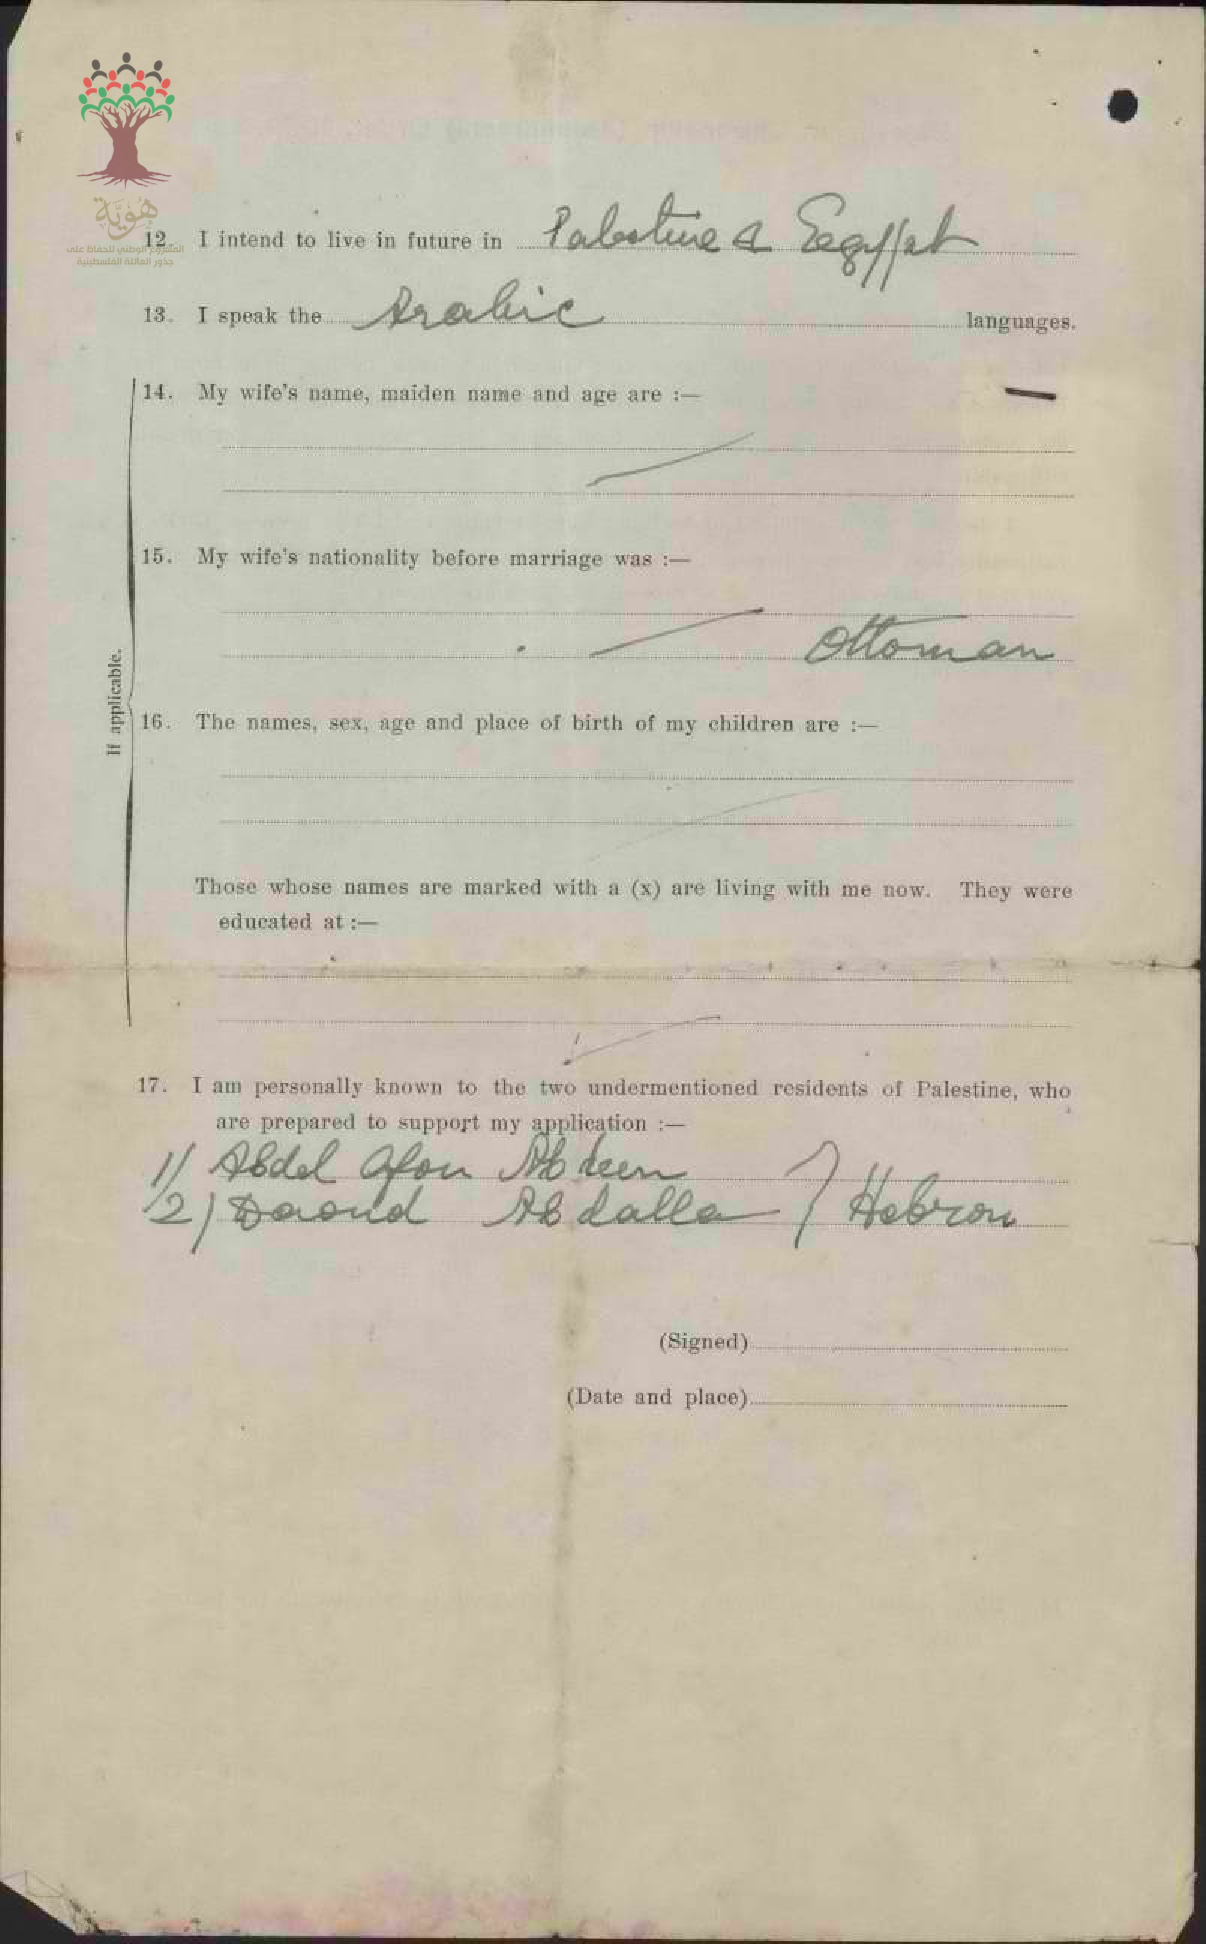 هُوِيَّة
المشروع الوطني للحفاظ على
جذور العائلة الفلسطينية
12. I intend to live in future in Palestine & Eegypt
13. I speak the Arabic languages.
14. My wife's name, maiden name and age are :—
15. My wife's nationality before marriage was :—
Ottoman
If applicable.
16. The names, sex, age and place of birth of my children are :—
Those whose names are marked with a (x) are living with me now. They were
educated at :—
17. I am personally known to the two undermentioned residents of Palestine, who
are prepared to support my application :—
1/ Abdel Afou Abdeen
2/ Daoud Abdalla } Hebron
(Signed)
(Date and place)